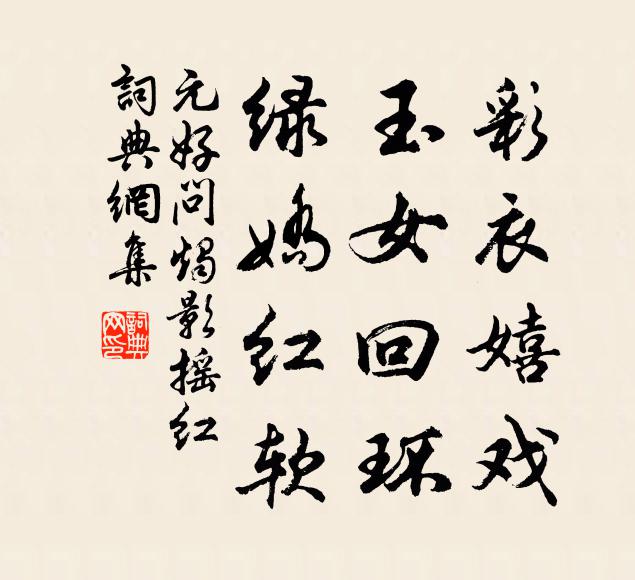 彩衣嬉戏
玉女回环
绿娇红软
元好问烛影摇红
詞典網集
詞典网印